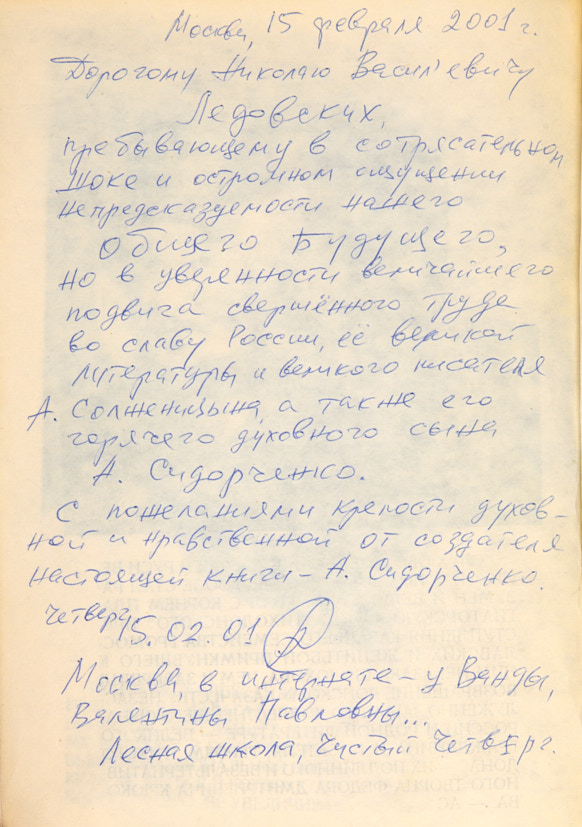 Москва, 15 февраля 2001 г.
Дорогому Николаю Васильевичу
Ледовских,
пребывающему в сотрясательном
шоке и остромном ощущении
непредсказуемости нашего
Общего Будущего,
но в уверенности величайшего
подвига свершённого труда
во славу России, её великой
литературы и великого писателя
А. Солженицына, а также его
горячего духовного сына
А. Сидорченко.
С пожеланиями крепости духов-
ной и нравственной от создателя
настоящей книги – А. Сидорченко.
четверг 15.02.01
Москва, в интернате – у Ванды,
Валентины Павловны...
Лесная школа, Чистый Четверг.